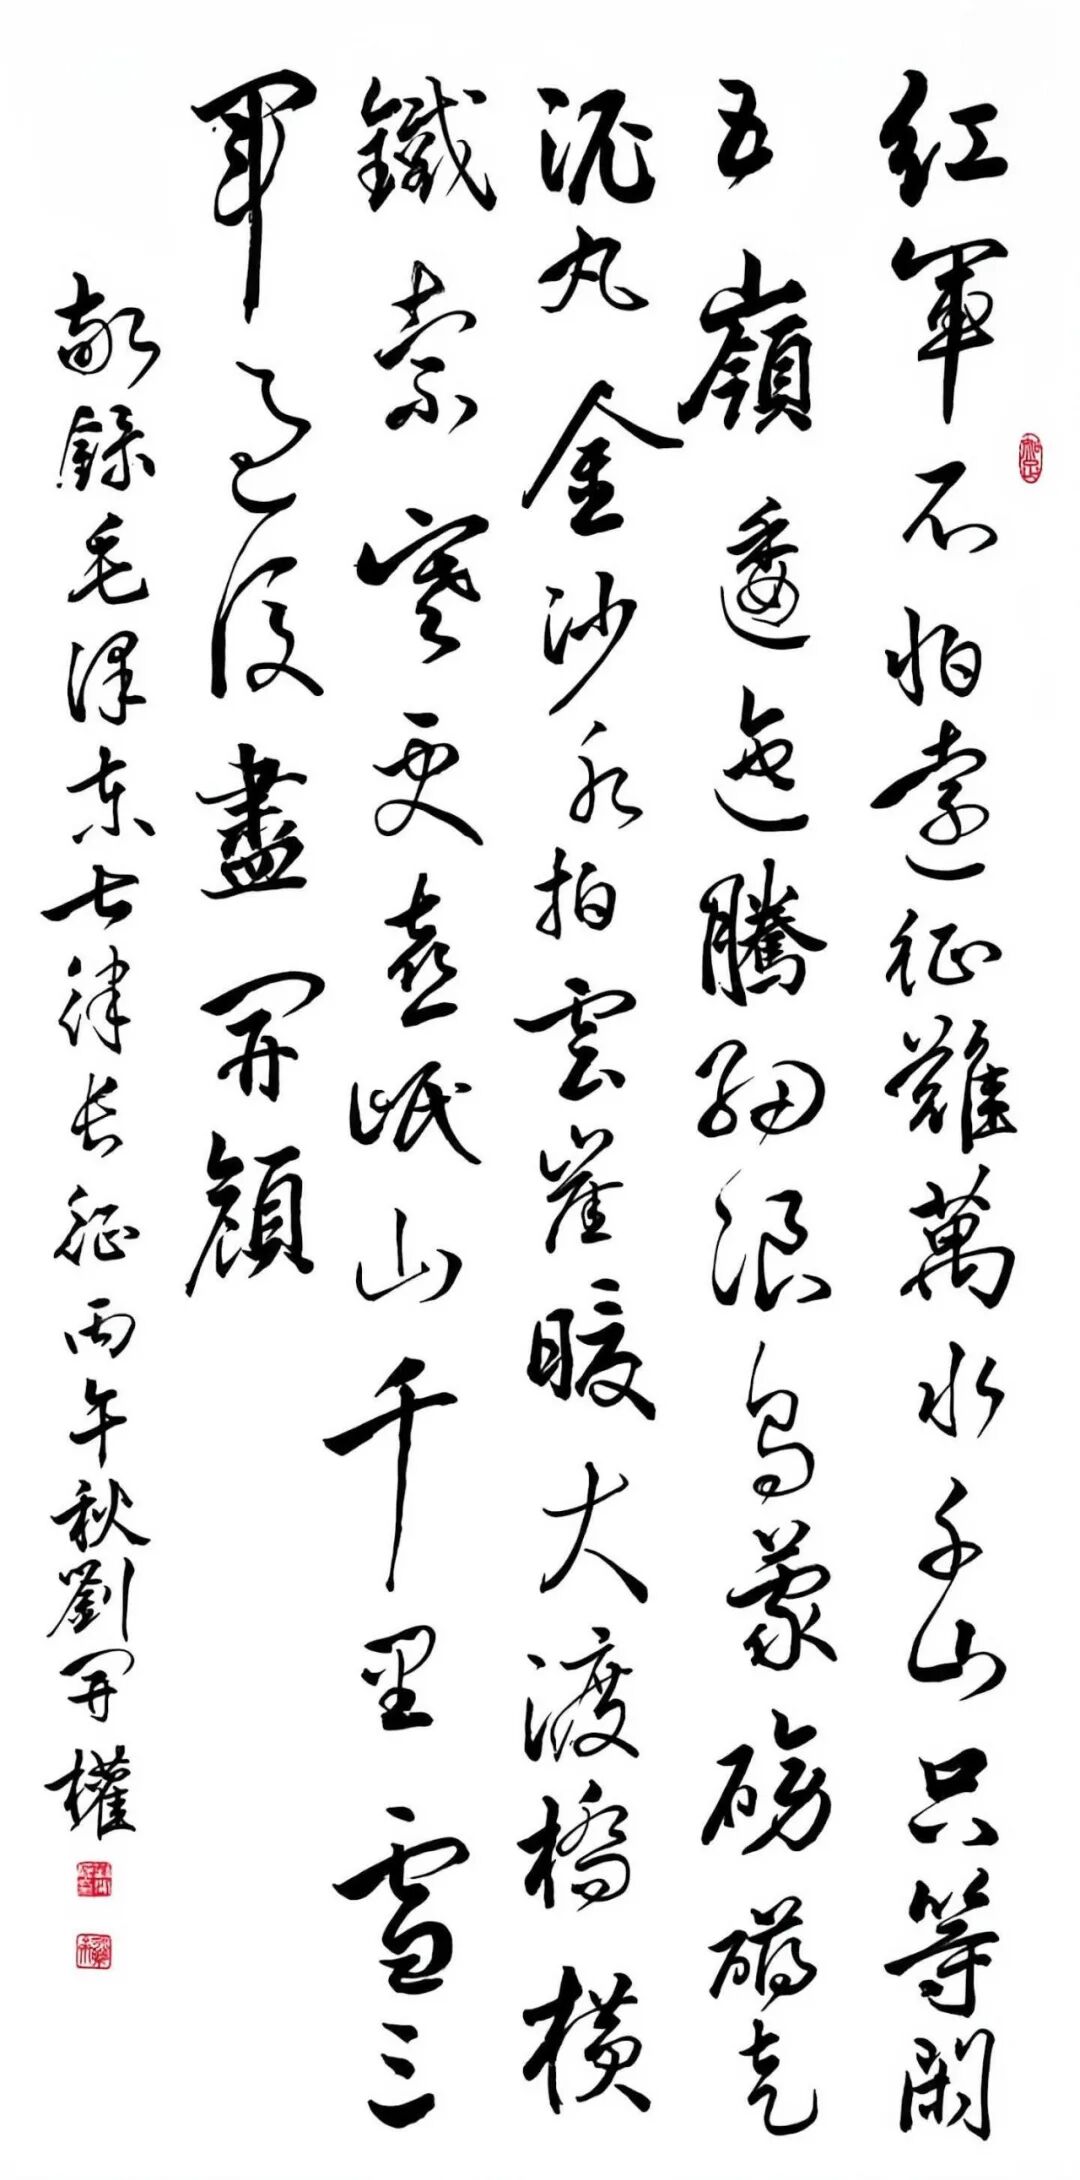 紅軍不怕遠征難萬水千山只等閑
五嶺逶迤騰細浪烏蒙磅礴走
泥丸金沙水拍雲崖暖大渡橋橫
鐵索寒更喜岷山千里雪三
軍過後盡開顏
敬錄毛澤東七律長征丙午秋劉開權